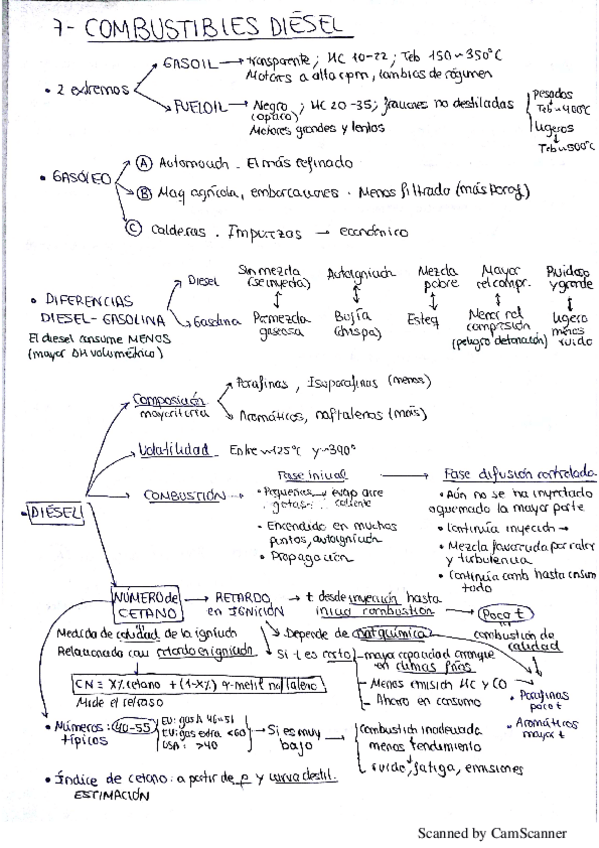 7- COMBUSTIBLES DIÉSEL
• 2 extremos
GASOIL → transparente ; HC 10-22 ; Teb 150~350°C
Motores a alta rpm, cambios de régimen
FUELOIL → Negro ; HC 20-35 ; fracciones no destiladas
(opaco)
Motores grandes y lentos
Pesados
Teb~400°C
ligeros
Teb~500°C
• GASÓLEO
A Automoción - El más refinado
B Maq agrícola, embarcaciones . Menos filtrado (más paraf)
C Calderas . Impurezas → económico
• DIFERENCIAS
DIESEL-GASOLINA
El diesel consume MENOS
(mayor ΔH volumétrico)
Diesel
Sin mezcla
(se inyecta)
Autoignición
Mezcla
pobre
Mayor
rel compr.
Ruidoso
y grande
Gasolina
Premezcla
gaseosa
Bujía
(chispa)
Esteq
Menor rel
compresión
(peligro detonación)
ligero
menos
ruido
• DIÉSEL
Composición
mayoritaria
Parafinas , Isoparafinas (menos)
Aromáticos, naftalenos (más)
Volatilidad - Entre ~125°C y ~390°
COMBUSTIÓN →
Fase inicial
• Pequeñas gotas → evap aire caliente
• Encendido en muchos
puntos, autoignición
• Propagación
Fase difusión controlada
• Aún no se ha inyectado
o quemado la mayor parte
• Continúa inyección →
• Mezcla favorecida por calor
y turbulencia
• Continúa comb hasta consum
todo
NÚMERO de
CETANO
→ RETARDO
en IGNICIÓN
→ t desde inyección hasta
inicio combustión
→ Poco t
combustión de
calidad
Medida de calidad de la ignición
Relacionado con retardo en ignición
Depende de nat química
• Parafinas
poco t
• Aromáticos
mayor t
Si t es corto
mayor capacidad arranque
en climas fríos
Menos emisión HC y CO
Ahorro en consumo
CN = X% cetano + (1-X%) α-metil naftaleno
Mide el retraso
• Números: 40-55
típicos
EU: gasA 46-51
EU: gas extra <60
USA: >40
→ Si es muy
bajo
Combustión inadecuada
menos rendimiento
ruido, fatiga, emisiones
• Índice de cetano: a partir de ρ y curva destil.
ESTIMACIÓN
Scanned by CamScanner